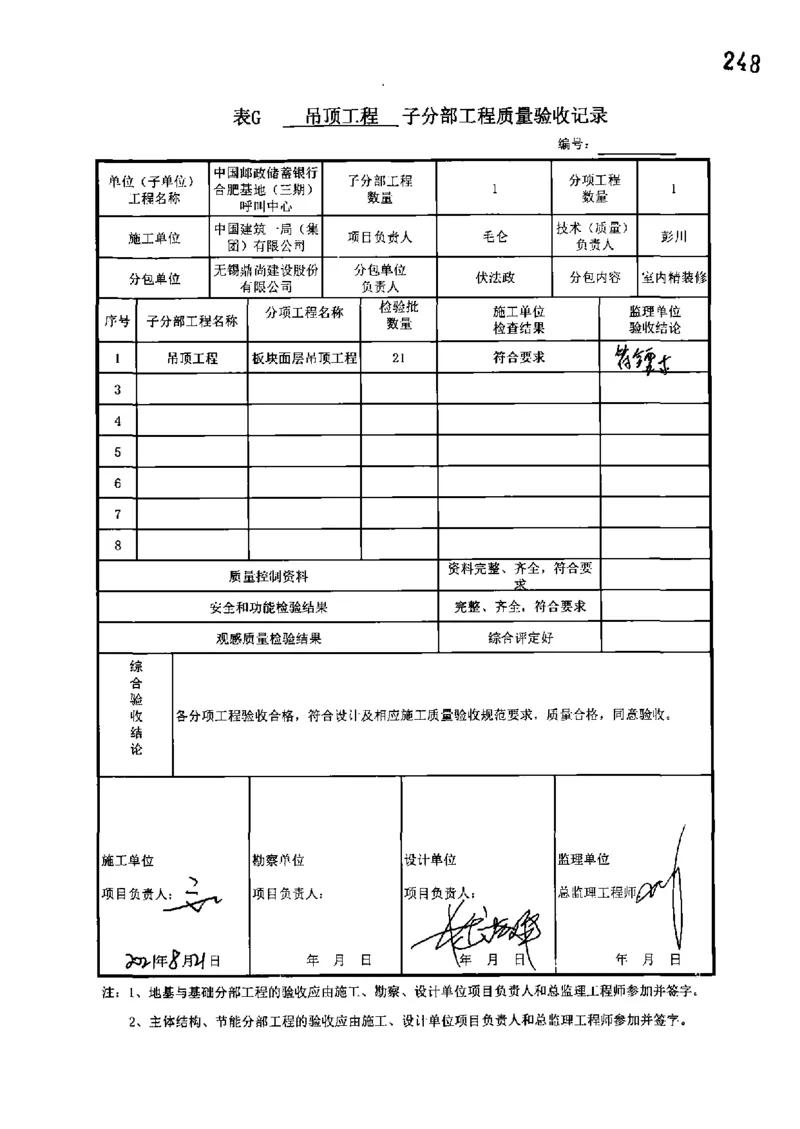 248
表G 吊顶工程 子分部工程质量验收记录
编号:
单位(子单位)工程名称 中国邮政储蓄银行合肥基地(三期)呼叫中心 子分部工程数量 1 分项工程数量 1
施工单位 中国建筑一局(集团)有限公司 项目负责人 毛仑 技术(质量)负责人 彭川
分包单位 无锡鼎尚建设股份有限公司 分包单位负责人 伏法政 分包内容 室内精装修
序号 子分部工程名称 分项工程名称 检验批数量 施工单位检查结果 监理单位验收结论
1 吊顶工程 板块面层吊顶工程 21 符合要求 符合要求
3
4
5
6
7
8
质量控制资料 资料完整、齐全,符合要求
安全和功能检验结果 完整、齐全,符合要求
观感质量检验结果 综合评定好
综合验收结论 各分项工程验收合格,符合设计及相应施工质量验收规范要求,质量合格,同意验收。
施工单位 勘察单位 设计单位 监理单位
项目负责人: 项目负责人: 项目负责人: 总监理工程师
2021年8月21日 年 月 日 年 月 日 年 月 日
注:1、地基与基础分部工程的验收应由施工、勘察、设计单位项目负责人和总监理工程师参加并签字。
2、主体结构、节能分部工程的验收应由施工、设计单位项目负责人和总监理工程师参加并签字。